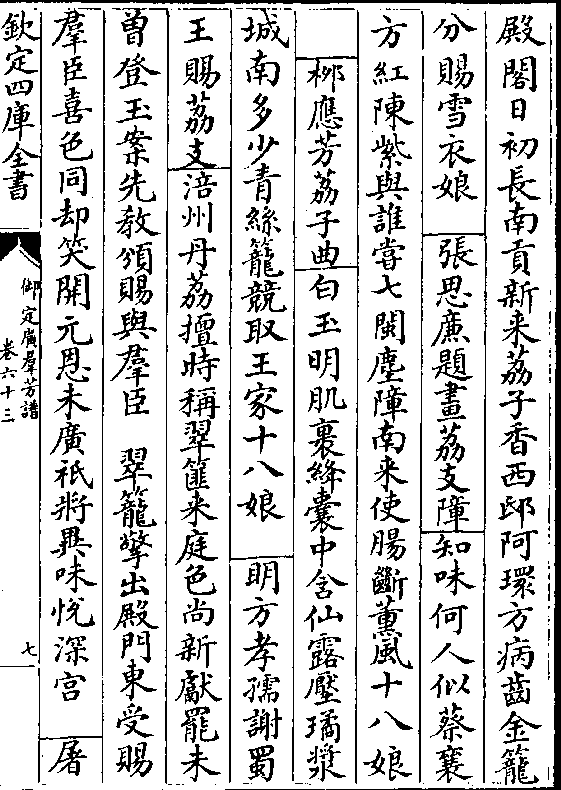 殿閣日初長南貢新来荔子香西邸阿環方病齒金籠
分賜雪衣娘 張思亷題畫荔支障 知味何人似蔡襄
方紅陳紫與誰嘗七閩塵障南来使腸斷薰風十八娘
栁應芳荔子曲 白玉明肌裹絳囊中含仙露壓璚漿
城南多少青絲籠競取王家十八娘 明方孝孺謝蜀
王賜荔支 涪州丹荔擅時稱翠篚来庭色尚新獻罷未
曽登玉案先教頒賜與羣臣 翠籠擎出殿門東受賜
羣臣喜色同却笑開元恩未廣祇將異味悅深宫 屠
欽定四庫全書
御定廣羣芳譜
卷六十三
七